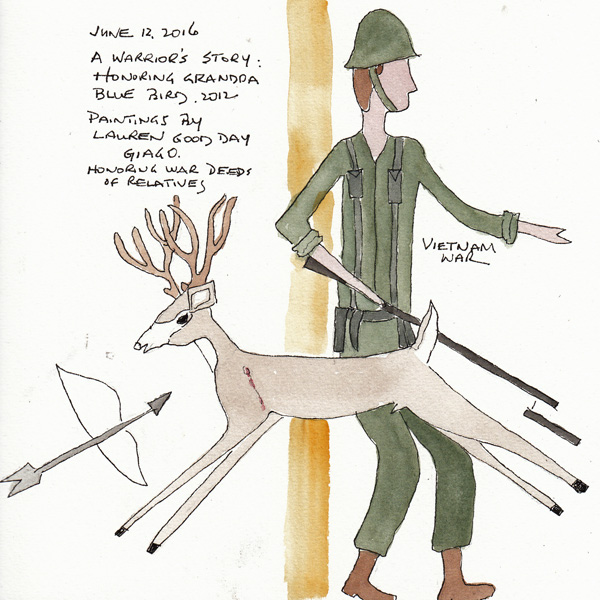 JUNE 12, 2016
A WARRIOR'S STORY:
HONORING GRANDPA
BLUE BIRD, 2012
PAINTINGS BY
LAUREN GOOD DAY
GIAGO.
HONORING WAR DEEDS
OF RELATIVES
VIETNAM
WAR